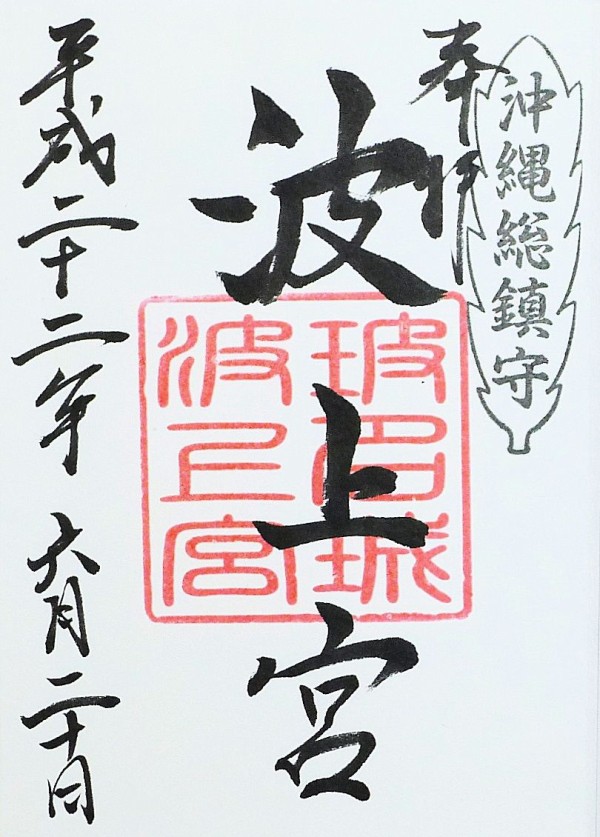 沖縄総鎮守
奉拝
波上宮
玻名城
波上宮
平成二十二年 六月二十日